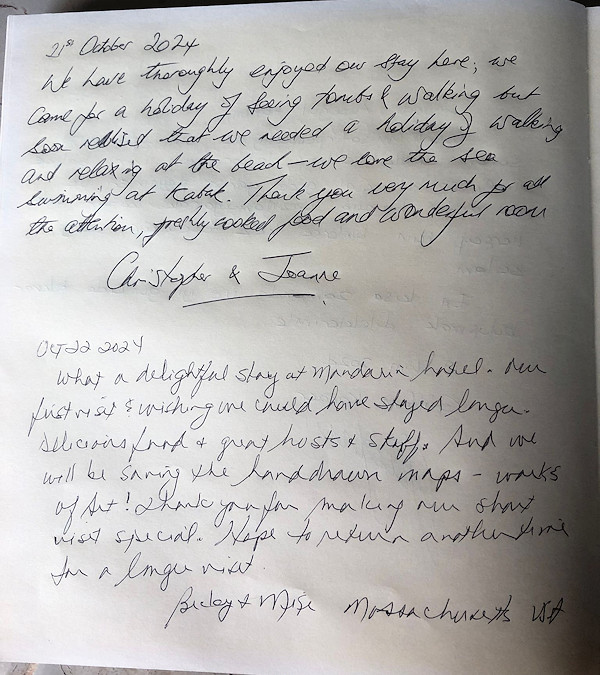 21st October 2024
We have thoroughly enjoyed our stay here; we
came for a holiday of seeing tombs & walking but
soon realised that we needed a holiday of walking
and relaxing at the beach – we love the sea
swimming at Kabak. Thank you very much for all
the attention, freshly cooked food and wonderful room
Christopher & Joanne
Oct 22 2024
What a delightful stay at Mandarin hotel. Our
first visit & wishing we could have stayed longer.
Delicious food + great hosts & staff. And we
will be saving the handdrawn maps - works
of Art! Thank you for making our short
visit special. Hope to return another time
for a longer visit.
Becky & Mike Massachusetts USA